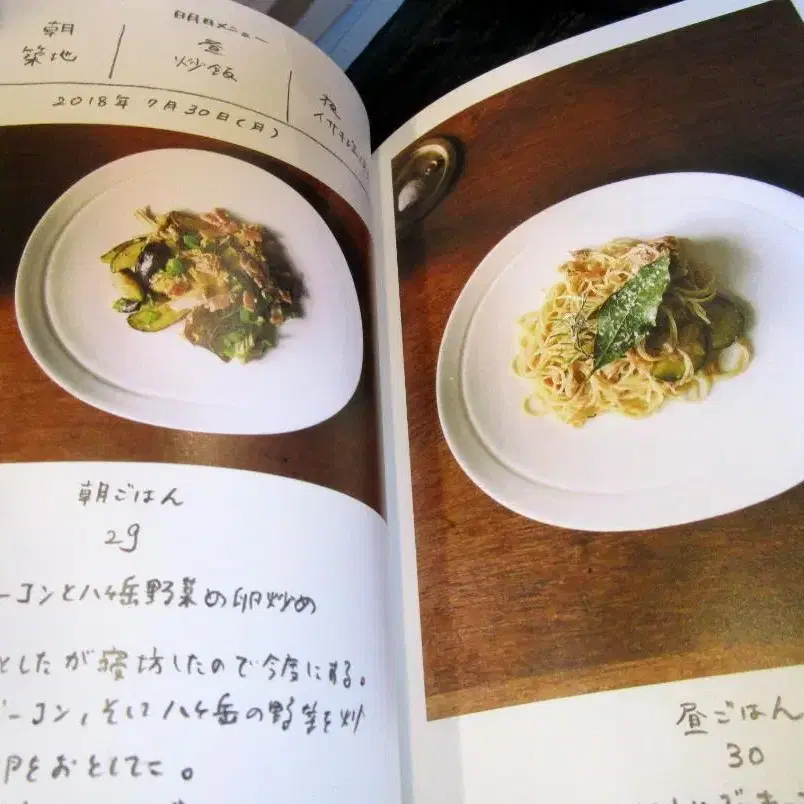 明日メニュー
朝
築地
昼
炒飯
夜
2018年 7月30日(月)
朝ごはん
29
ーコンと八ヶ岳野菜の卵炒め
としたが寝坊したので今度にする。
ーコン、そして八ヶ岳の野菜を炒
卵をおとしてこ。
昼ごはん
30